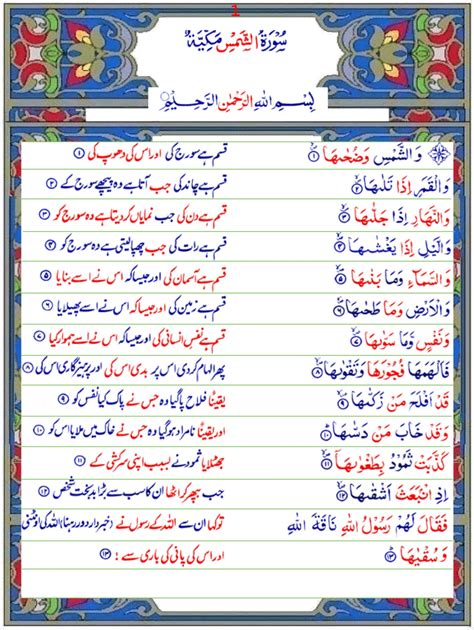 1
سُوْرَةُ الشَّمْسِ مَكِّيَّةٌ
بِسْمِ اللهِ الرَّحْمٰنِ الرَّحِيْمِ
وَالشَّمْسِ وَضُحٰىهَا ۱ قسم ہے سورج کی اور اس کی دھوپ کی ۱
وَالْقَمَرِ اِذَا تَلٰىهَا ۲ قسم ہے چاند کی جب آتا ہے وہ پیچھے سورج کے ۲
وَالنَّهَارِ اِذَا جَلّٰىهَا ۳ قسم ہے دن کی جب نمایاں کر دیتا ہے وہ سورج کو ۳
وَالَّيْلِ اِذَا يَغْشٰىهَا ۴ قسم ہے رات کی جب چھپا لیتی ہے وہ سورج کو ۴
وَالسَّمَآءِ وَمَا بَنٰىهَا ۵ قسم ہے آسمان کی اور جیسا کہ اس نے اسے بنایا ۵
وَالْاَرْضِ وَمَا طَحٰىهَا ۶ قسم ہے زمین کی اور جیسا کہ اس نے اسے پھیلایا ۶
وَنَفْسٍ وَّمَا سَوّٰىهَا ۷ قسم ہے نفس انسانی کی اور جیسا کہ اس نے اسے ہموار کیا ۷
فَاَلْهَمَهَا فُجُوْرَهَا وَتَقْوٰىهَا ۸ پھر الہام کر دی اس پر بدی اس کی اور پرہیزگاری اس کی ۸
قَدْ اَفْلَحَ مَنْ زَكّٰىهَا ۹ یقینًا فلاح پا گیا وہ جس نے پاک کیا نفس کو ۹
وَقَدْ خَابَ مَنْ دَسّٰىهَا ۱۰ اور یقینًا نامراد ہو گیا وہ جس نے خاک میں ملایا اس کو ۱۰
كَذَّبَتْ ثَمُوْدُ بِطَغْوٰىهَا ۱۱ جھٹلایا ثمود نے بسبب اپنی سرکشی کے ۱۱
اِذِ انْۢبَعَثَ اَشْقٰىهَا ۱۲ جب بپھر کر اٹھا ان کا سب سے بڑا بدبخت شخص ۱۲
فَقَالَ لَهُمْ رَسُوْلُ اللهِ نَاقَةَ اللهِ تو کہا ان سے اللہ کے رسول نے (خبردار دور رہنا) اللہ کی اونٹنی
وَسُقْيٰهَا ۱۳ اور اس کی پانی کی باری سے! ۱۳